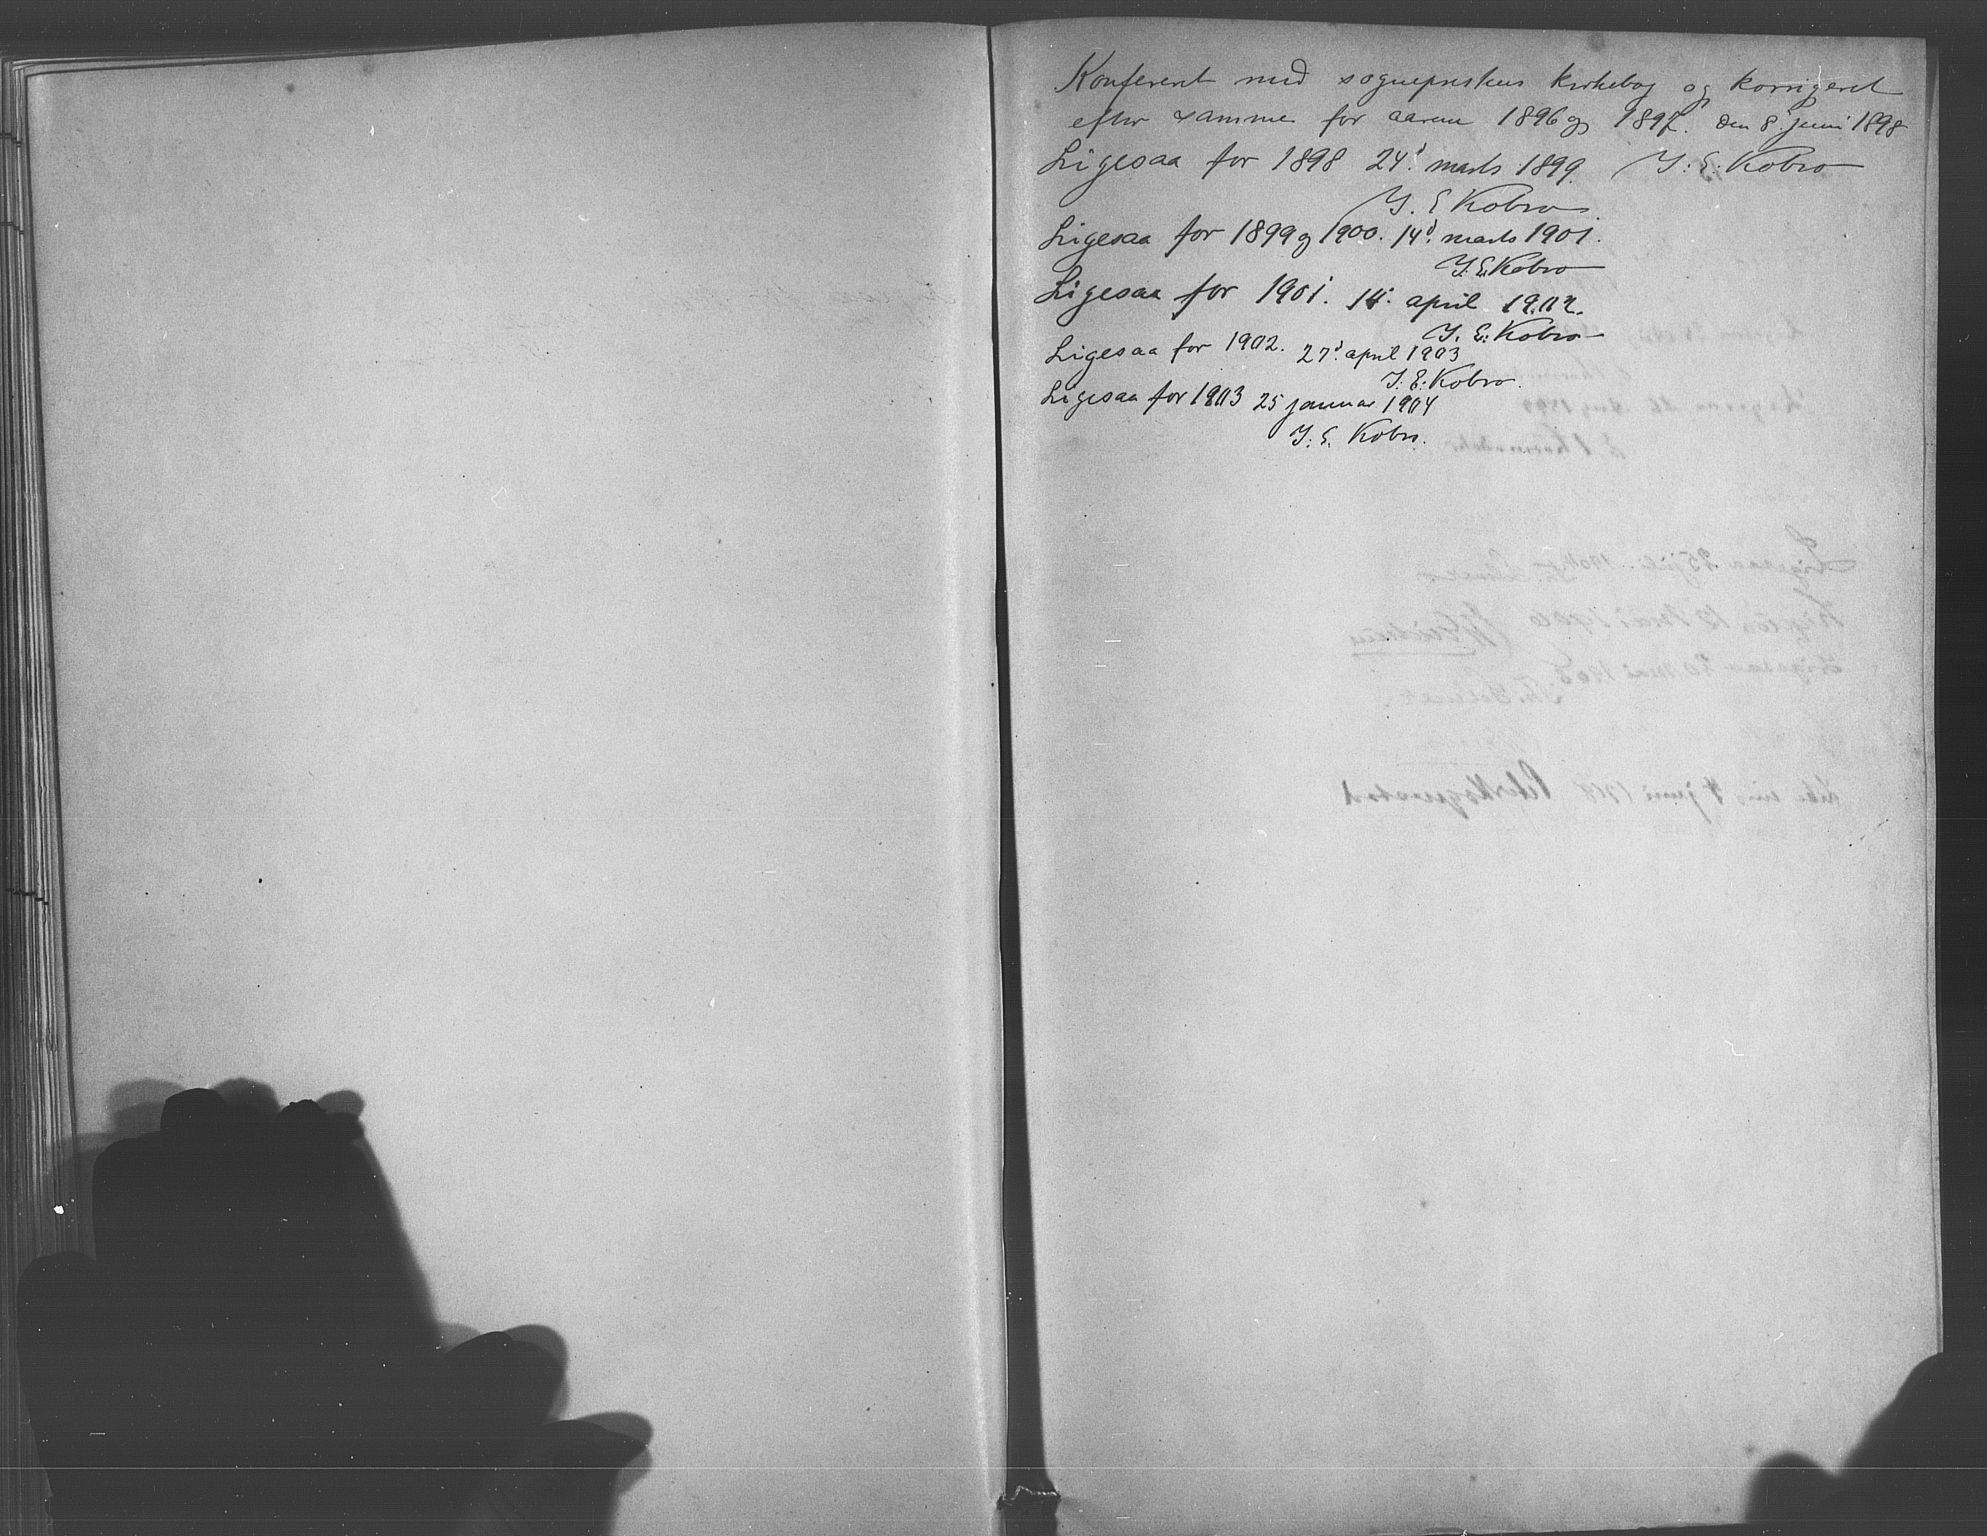 Konfereret med sogneprestens kirkebog og korrigeret
efter samme for aarene 1896 og 1897. den 8. juni 1898
Ligesaa for 1898 24' marts 1899. J. E. Kobro
J. E Kobro.
Ligesaa for 1899 og 1900. 14d. marts 1901.
J. E. Kobro
Ligesaa for 1901. april 1902.
J. E. Kobro
Ligesaa for 1902. 27d. april 1903
J. E. Kobro.
Ligesaa for 1903 25 januar 1904
J. E. Kobro.